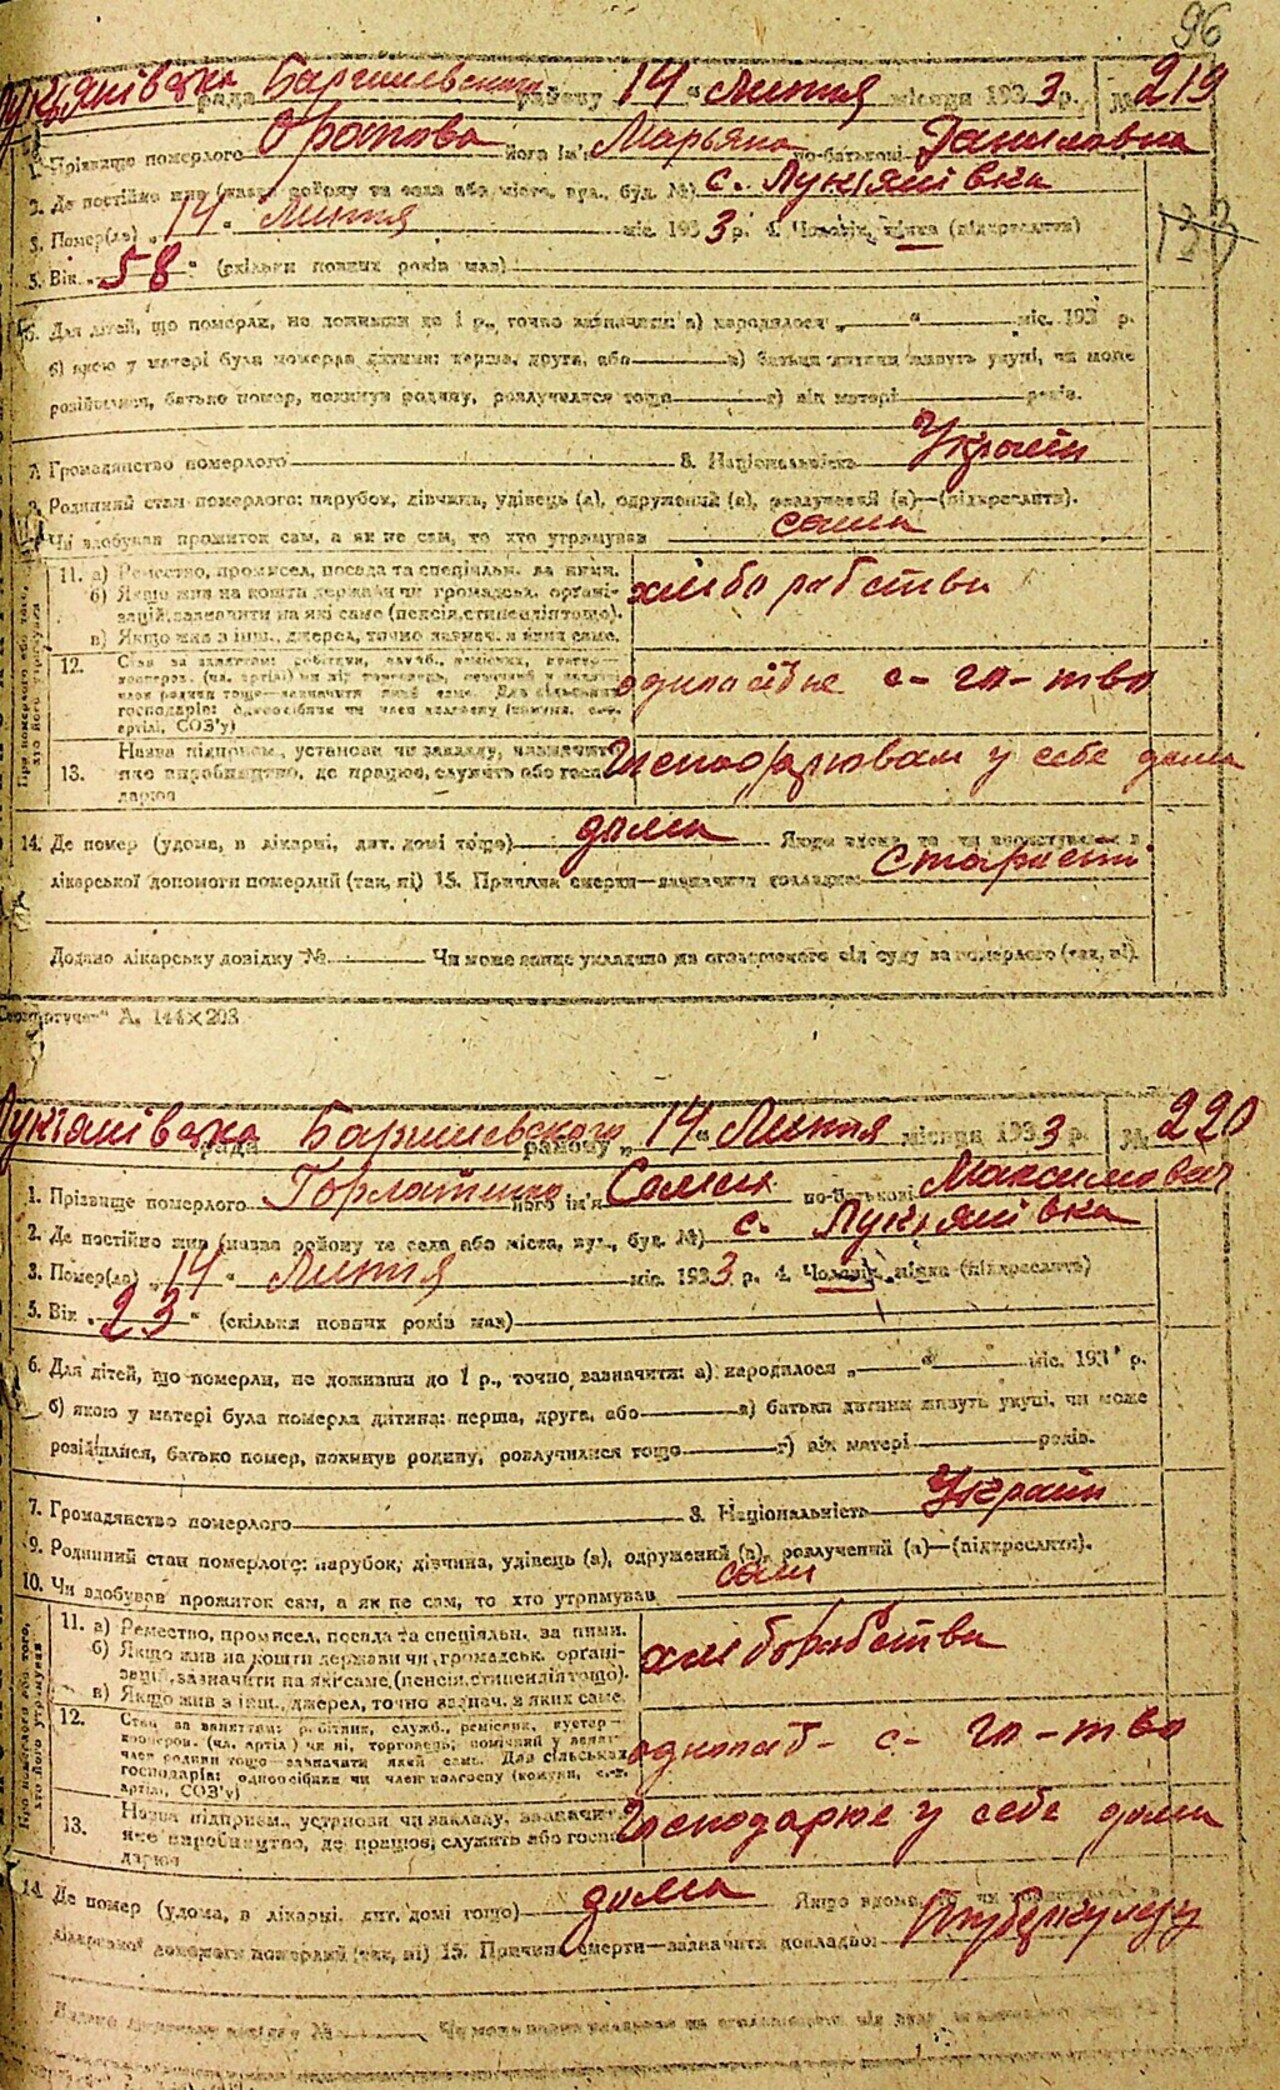 96
Лукʼянівска рада Баришевського району 14 " Липня місяця 1933 р. № 219
1. Прізвище померлого його ім'я Марьяна по-батькові Даниловна
2. Де постійно жив (назва району та села або міста, вул., буд. №) с. Лукʼянівка
3. Помер(ла) „ 14 " Липня міс. 1933 р. 4. Чоловік, жінка (підкреслити)
5. Вік „ 58 " (скільки повних років мав)
6. Для дітей, що померли, не доживши до 1 р., точно зазначити: а) народилося „ " міс. 193 р.
б) якою у матері була померла дитина: перша, друга, або в) батьки дитини живуть укупі, чи може
розійшлися, батько помер, покинув родину, розлучилися тощо г) вік матері років.
7. Громадянство померлого 8. Національність Україн
9. Родинний стан померлого: парубок, дівчина, удівець (а), одружений (а), розлучений (а)—(підкреслити).
Чи здобував прожиток сам, а як не сам, то хто утримував сама
11. а) Ремество, промисел, посада та спеціяльн. за ними.
б) Якщо жив на кошти держави чи громадськ. органі-
зацій, зазначити на які саме (пенсія, стипендія тощо).
в) Якщо жив з інш. джерел, точно зазнач. з яких саме.
хліборобство
12. Стан за заняттям: робітник, служб., ремісник, кустар—
господарів: одноосібник чи член колгоспу (комуни, с.-г.
артілі, СОЗ'у)
одноосібне с-го-тво
13. Назва підприєм., установи чи закладу, зазначити
яке виробництво, де працює, служить або госпо-
дарює
у себе дома
14. Де помер (удома, в лікарні, дит. домі тощо) дома Якщо вдома, то чи користувався з
лікарської допомоги померлий (так, ні) 15. Причина смерти—зазначити докладно: старость
Додано лікарську довідку № Чи може
А. 144×203
Лукʼянівска рада Баришевського району „ 14 " Липня місяця 1933 р. № 220
1. Прізвище померлого його ім'я по-батькові Максимович
2. Де постійно жив (назва району та села або міста, вул., буд. №) с. Лукʼянівка
3. Помер(ла) „ 14 " Липня міс. 1933 р. 4. Чоловік, жінка (підкреслити)
5. Вік „ 23 " (скільки повних років мав)
6. Для дітей, що померли, не доживши до 1 р., точно зазначити: а) народилося „ " міс. 193 р.
б) якою у матері була померла дитина: перша, друга, або в) батьки дитини живуть укупі, чи може
розійшлися, батько помер, покинув родину, розлучилися тощо г) вік матері років.
7. Громадянство померлого 8. Національність Україн
9. Родинний стан померлого: парубок, дівчина, удівець (а), одружений (а), розлучений (а)—(підкреслити).
10. Чи здобував прожиток сам, а як не сам, то хто утримував сам
11. а) Ремество, промисел, посада та спеціяльн. за ними.
б) Якщо жив на кошти держави чи громадськ. органі-
зацій, зазначити на які саме (пенсія, стипендія тощо).
в) Якщо жив з інш. джерел, точно зазнач. з яких саме.
хліборобство
12. Стан за заняттям: робітник, служб., ремісник, кустар—
кооперов. (чл. артілі) чи ні, торговець, помічний у занят.
член родини тощо—зазначити який саме. Для сільських
господарів: одноосібник чи член колгоспу (комуни, с.-г.
артілі, СОЗ'у)
с- го-тво
13. Назва підприєм., установи чи закладу, зазначити
яке виробництво, де працює, служить або госпо-
дарює
Господарює у себе дома
14. Де помер (удома, в лікарні, дит. домі тощо) дома Якщо вдома, то чи користувався з
лікарської допомоги померлий (так, ні) 15. Причина смерти—зазначити докладно: Туберкульоз